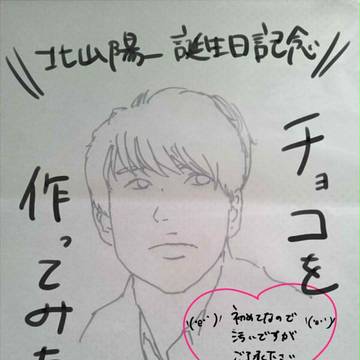 \\北山陽一 誕生日記念//
チョコを
作ってみた
初めてなので
汚いですが
ご了承下さい